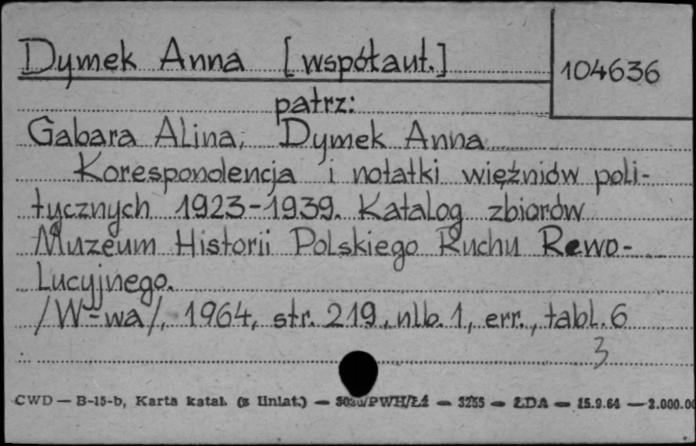 Dymek Anna [współaut.]
104636
patrz:
Gabara Alina, Dymek Anna
Korespondencja i notatki więźniów poli-
tycznych 1923-1939. Katalog zbiorów
Muzeum Historii Polskiego Ruchu Rewo-
lucyjnego.
/W-wa/, 1964, str. 219, nlb. 1, err., tabl. 6
3
CWD — B-15-b, Karta katal. (z liniat.) — PWH/Łź — 3255 — ŁDA — 15.9.64 — 2.000.00